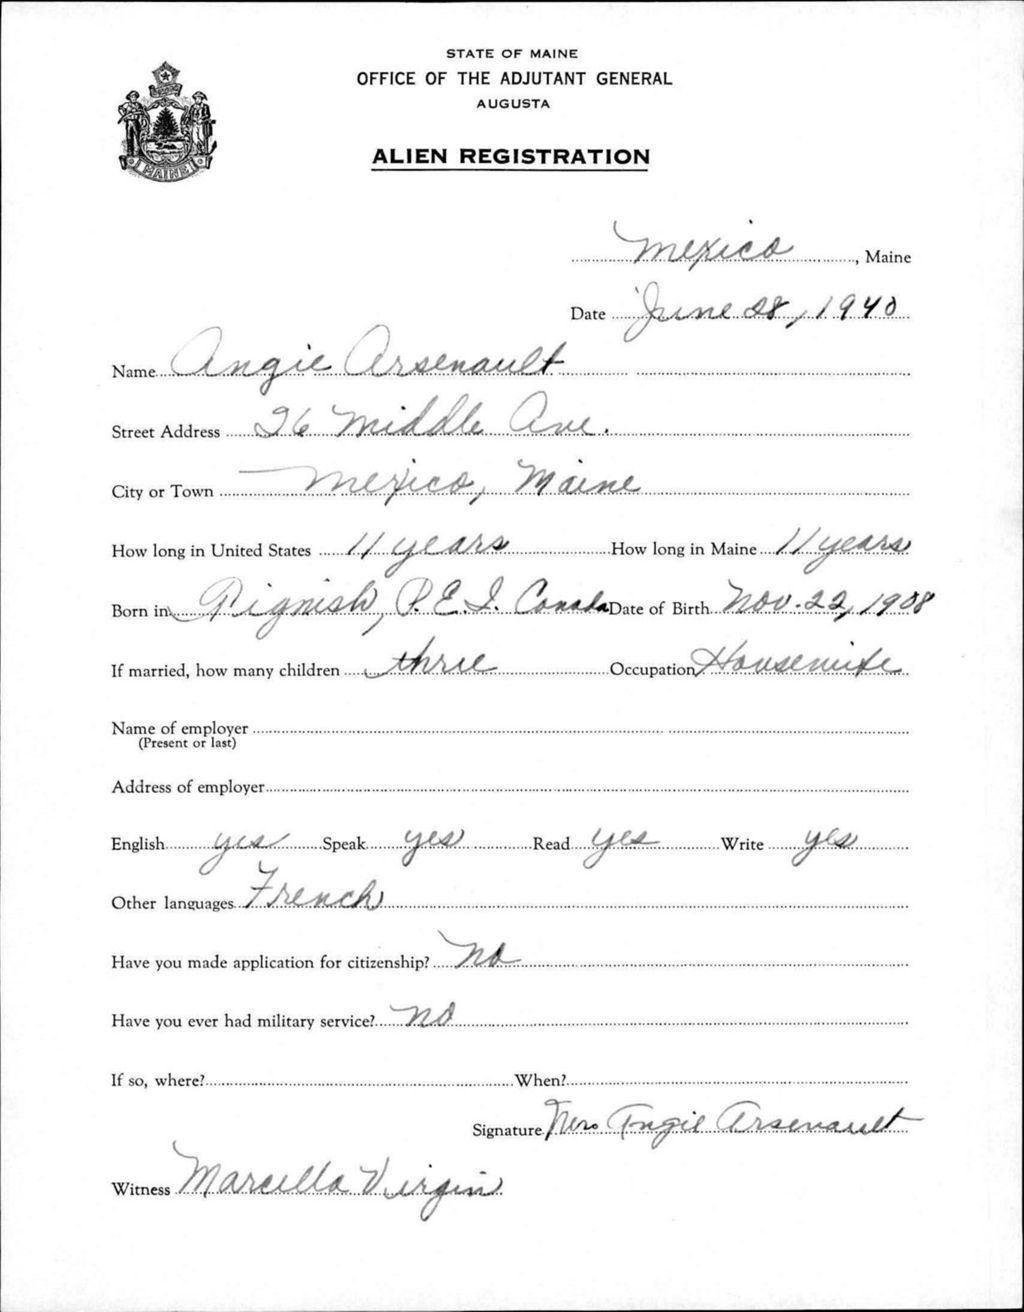 STATE OF MAINE
OFFICE OF THE ADJUTANT GENERAL
AUGUSTA
ALIEN REGISTRATION
MAINE
Mexico, Maine
Date June 28, 1940
Name Angie Arsenault
Street Address 26 Middle Ave.
City or Town Mexico, Maine
How long in United States 11 years How long in Maine 11 years
Born in Pignish, P.E.I. Canada Date of Birth Nov. 22, 1908
If married, how many children three Occupation Housewife
Name of employer
(Present or last)
Address of employer
English yes Speak yes Read yes Write yes
Other languages French
Have you made application for citizenship? No
Have you ever had military service? No
If so, where? When?
Signature Mrs Angie Arsenault
Witness Marcella Virgin